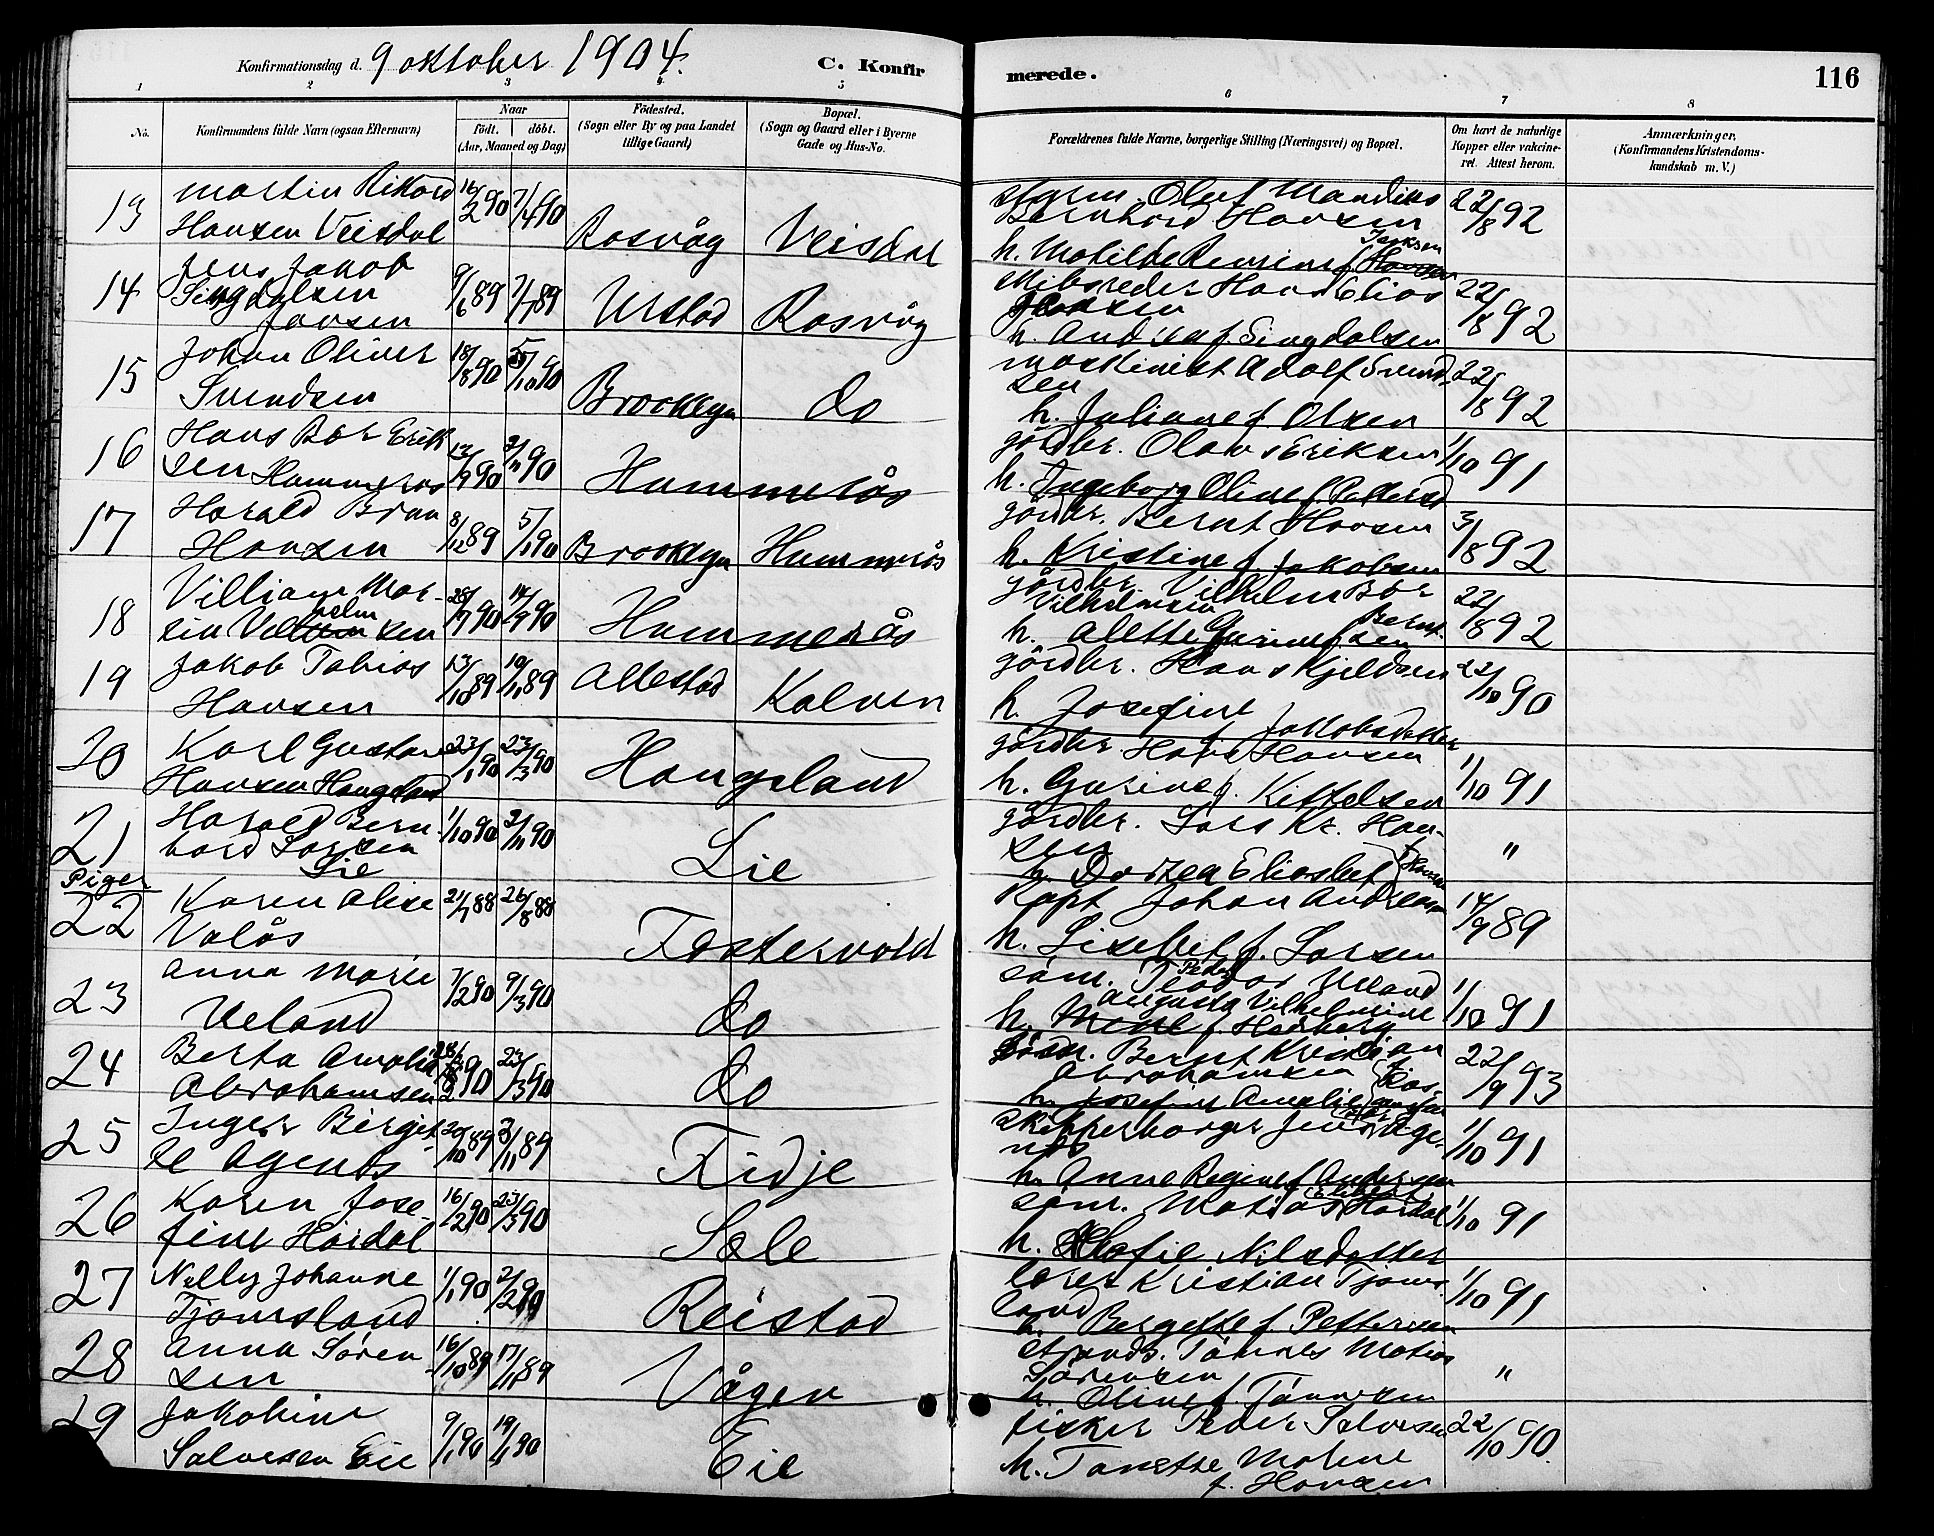 Konfirmationsdag d. 9 oktober 1904. C. Konfirmerede. 116
1 2 3 4 5 6 7 8
No.
Konfirmandens fulde Navn (ogsaa Efternavn)
Naar
født. døbt.
(Aar, Maaned og Dag)
Fødested.
(Sogn eller By og paa Landet
tillige Gaard)
Bopæl.
(Sogn og Gaard eller i Byerne
Gade og Hus-No.
Forældrenes fulde Navne, borgerlige Stilling (Næringsvei) og Bopæl.
Om havt de naturlige
Kopper eller vakcine-
ret. Attest herom.
Anmærkninger.
(Konfirmandens Kristendoms-
kundskab m. V.)
13 Martin Rikard 16/2 90 7/4 90
Hansen Veisdal Rosvåg Veisdal
styrm. Oluf Mandius 22/8 92
Bernhard Hansen
h. Matilde Remine f. Hansen
14 Jens Jakob 9/6 89 7/7 89
Singdalsen
Jansen Urstad Rosvåg
Skibsreder Hans Elias 22/8 92
Jansen
h. Andrea f. Singdalsen
15 Johan Oliver 18/8 90 5/10 90
Svendsen Brooklyn do
maskinist Adolf Svend- 22/8 92
sen
h. Juliane f. Olsen
16 Hans Bør Erik
sen Hummerås 13/9 90 2/11 90 Hummerås
gårdbr. Olaus Eriksen 1/10 91
h. Ingeborg Oline f. Pettersd
17 Harald Brun 8/12 89 5/1 90
Hansen Brooklyn Hummerås
gårdbr. Bernt Hansen 3/8 92
h. Kristine f. Jakobsen
18 Villiam Mar- 28/7 90 14/9 90
sin Vilhelmsen Hummerås
gårdbr. Vilhelm Bør 22/8 92
Vilhelmsen
h. Alette Gurine f. Berntsen
19 Jakob Tobias 13/10 89 10/11 89
Hansen Allestad Kalven
gårdbr. Hans Kjeldsen 22/10 90
h. Josefine
f. Jakobsdatter
20 Karl Gustav 23/1 90 23/3 90
Hansen Haugland Haugeland
gårdbr. Hans Hansen 1/10 91
h. Gurine f. Kittelsen
21 Harald Bern- 1/10 90 2/11 90
hard Larsen
Lie Lie
gårdbr. Lars Kr. Han- "
sen
h. Dortea Eliasbet f. Hansen
Piger
22 Karen Alise 21/7 88 26/8 88
Valås Fostervold
Kapt Johan Andreas 14/9 89
h. Lisebet f. Larsen
23 Anna Marie 7/2 90 9/3 90
Ueland do
søm. Teodor Peder Ueland 1/10 91
Augusta Vilhelmine
h. f. Hedberg
24 Berta Amalia 90 23/3 90
Abrahamsen do
søm. Bernt Kristian 22/9 93
Abrahamsen
h. Josefine Amalie
25 Inger Birgit- 20/10 89 3/11 89
te Agenæs Fidje
skipperborger Jens Age- 1/10 91
næs
h. Anne Regine f. Andersen
26 Karen Jose- 16/2 90 23/3 90
fine Hårdal Sæle
søm. Matias Hårdal 1/10 91
h. Nilsdatter
27 Nelly Johanne 1/1 90 2/2 90
Tjomsland Reistad
lærer Kristian Tjoms- 1/10 91
land
h. Bergitte f. Pettersen
28 Anna Sören 16/10 89 17/11 89
sen Vågen
strands. Tönnes Matias "
Sörensen
h. Oline f. Tönnesen
29 Jakobine 9/1 90 19/1 90
Salvesen Eie Eie
fisker Peder Salvesen 22/10 90.
h. Tanette Maline
f. Hansen